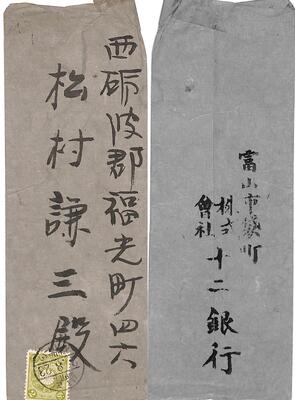 西砺波郡福光町四六
松村謙三殿
富山市袋町
株式
會社
十二銀行